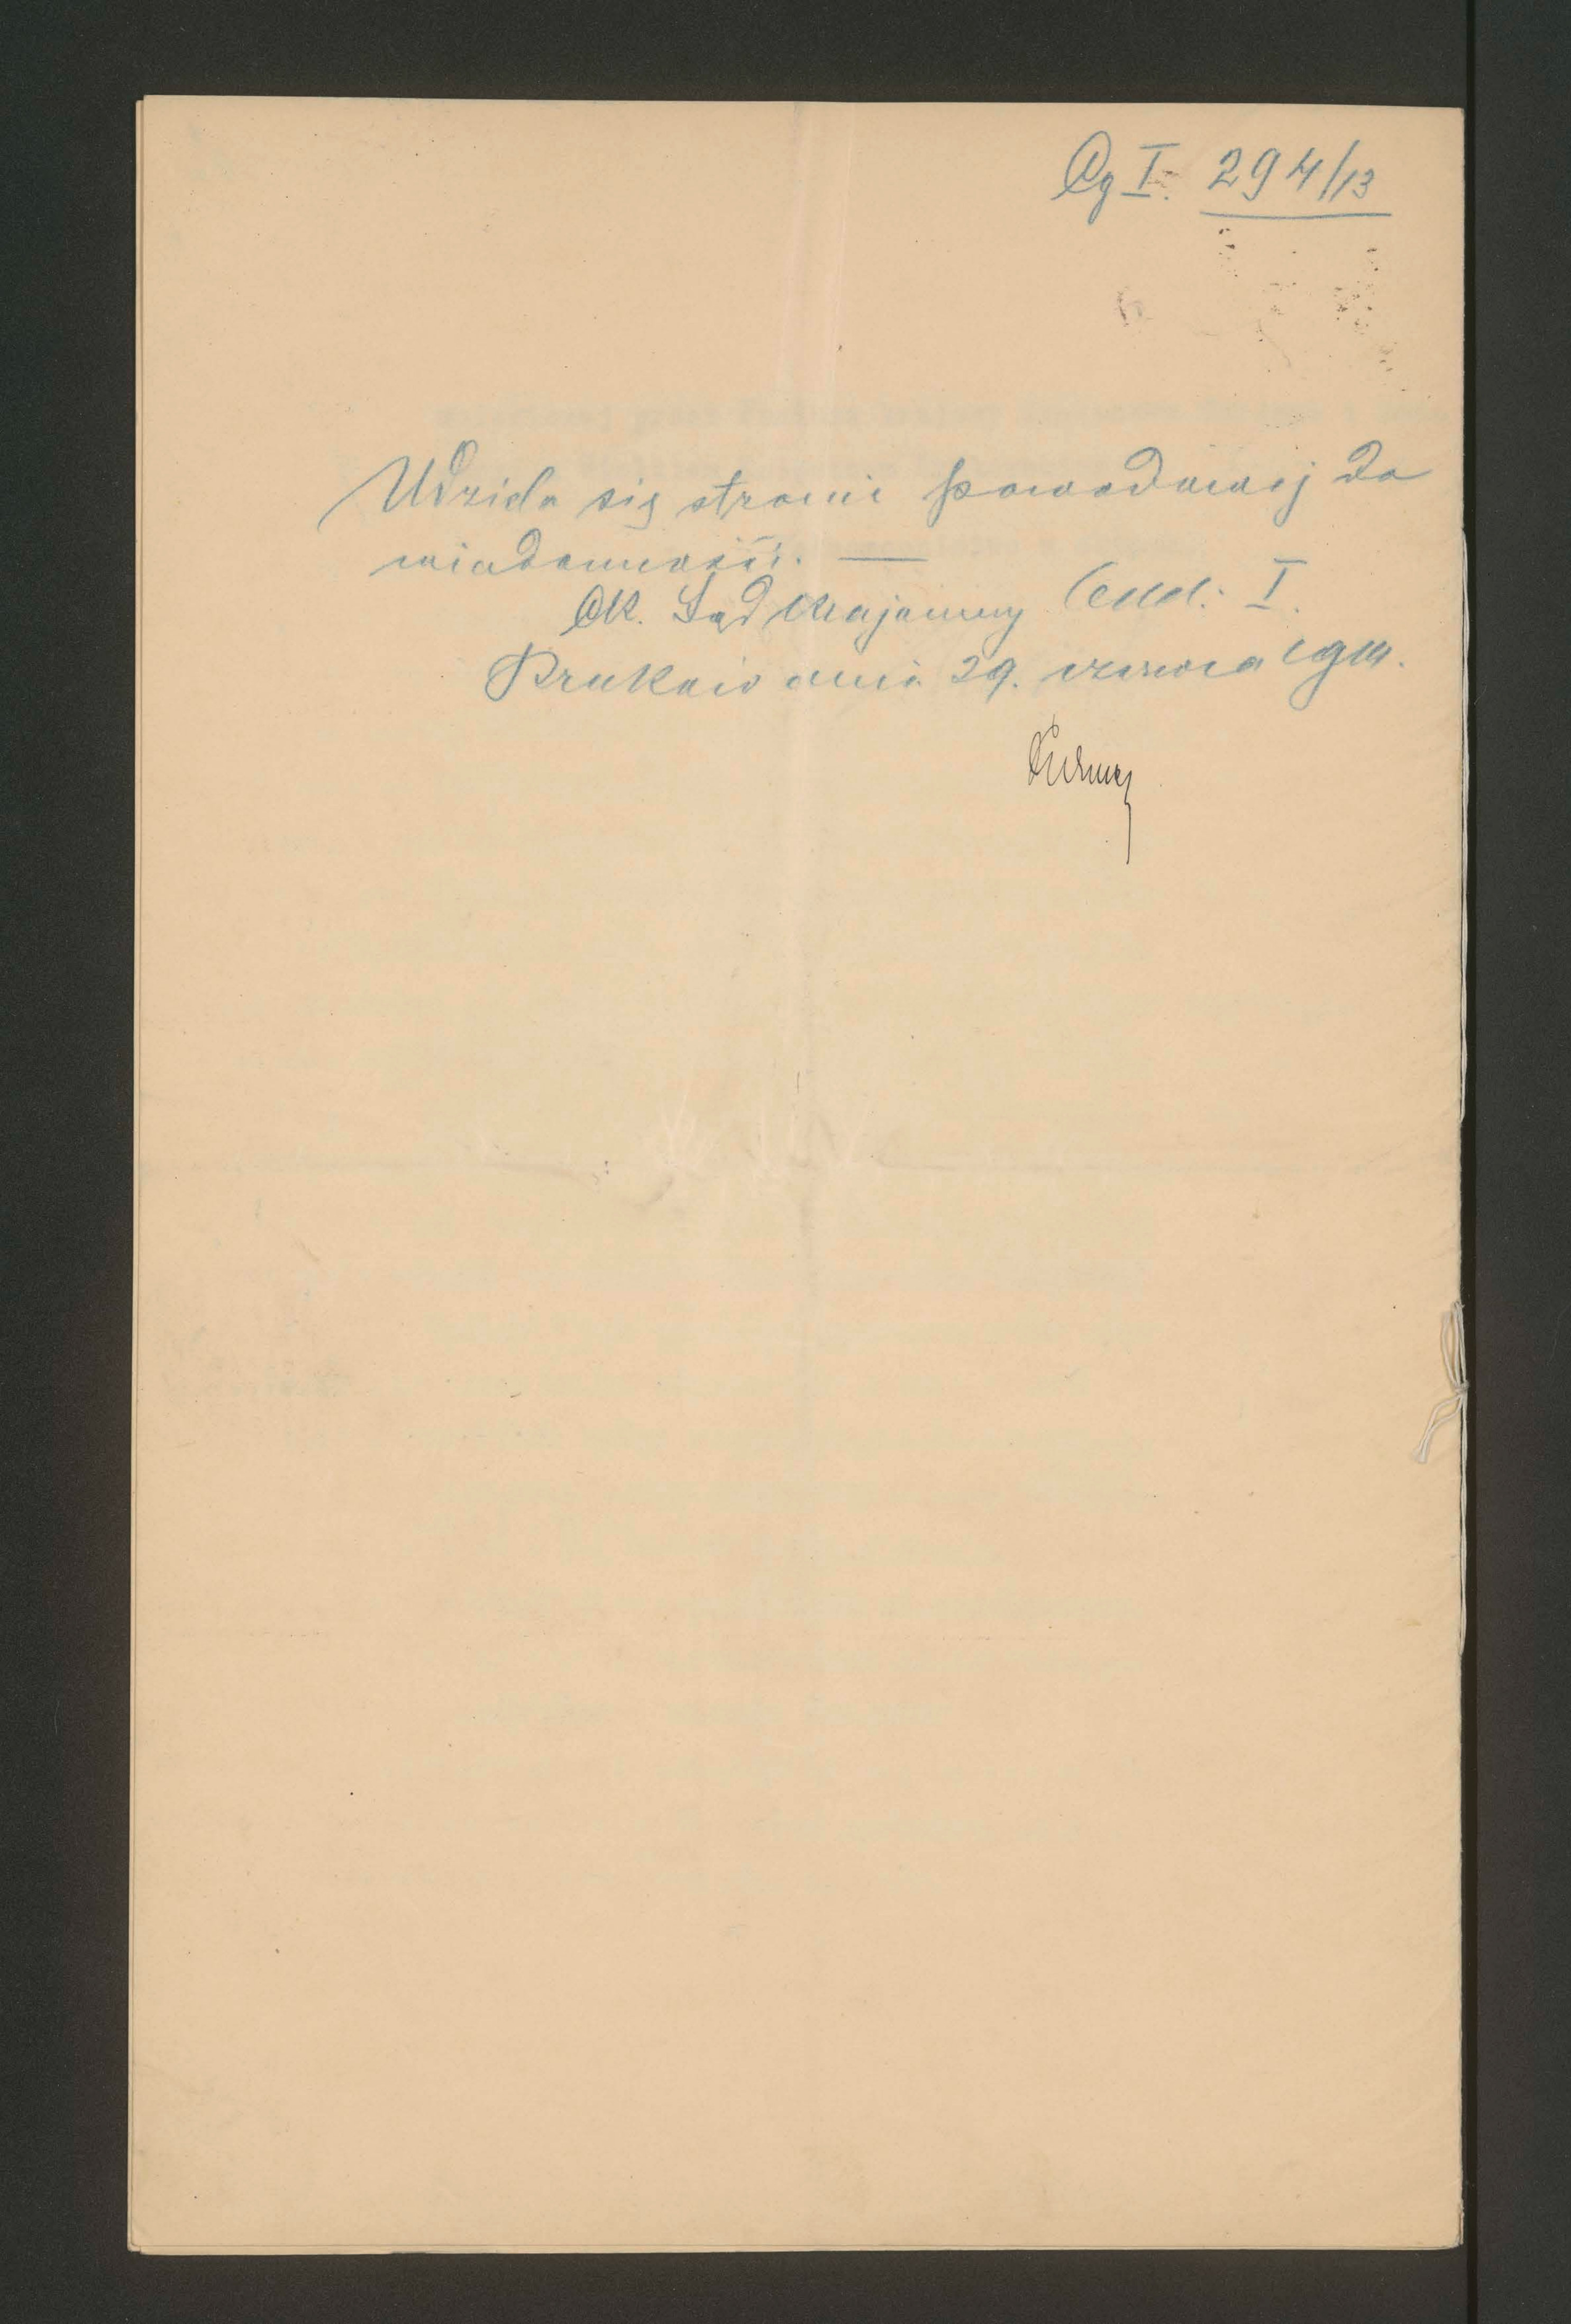 Cg I. 294/13
Udziela się stronie powodowej do
wiadomości. —
CK. Sąd Krajowy Odd: I.
Kraków dnia 29. czerwca 1914.